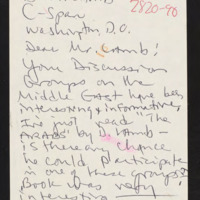 C-Span
Washington, D.C.
Dear Mr. Lamb:
Your Discussion
Groups on the
Middle East have been
interesting & informative.
I've just read "The
Arabs" by D. Lamb -
is there an chance
he could participate
in one of these groups?
Book was very
interesting
2820-90